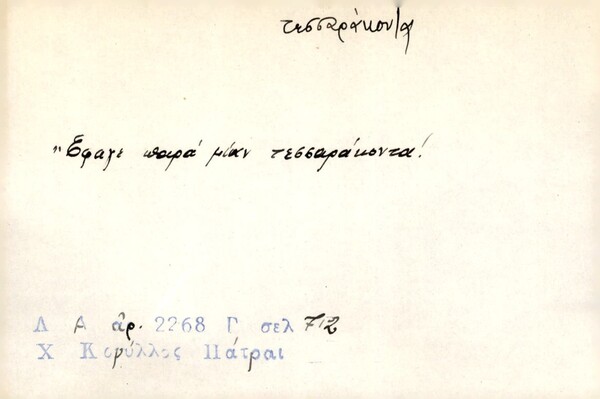 τεσσαράκοντα
"Ἔφαγε παρά μίαν τεσσαράκοντα!
Λ Α ἀρ. 2268 Γ σελ 712
Χ Κορύλλος Πάτραι